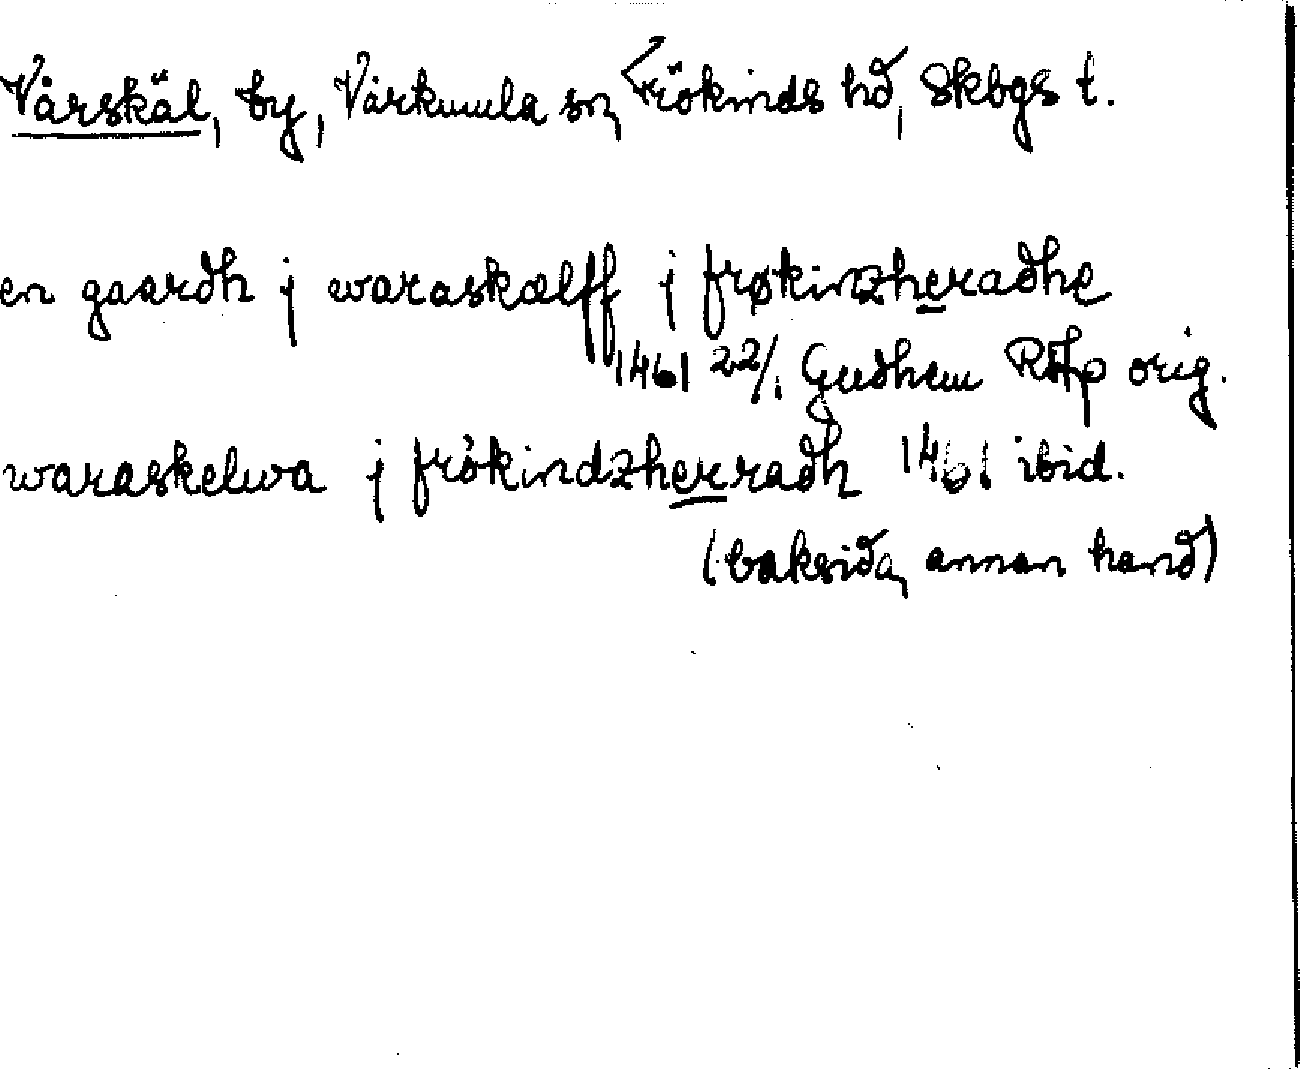 Vårskäl, by, Vårkumla sn, Frökinds hd, Skbgs t.
en gaardh j waraskælff j frøkinzheradhe
1461 22/1 Gudhem RAp orig.
waraskelwa j frökindzherradh 1461 ibid.
(baksida, annan hand)